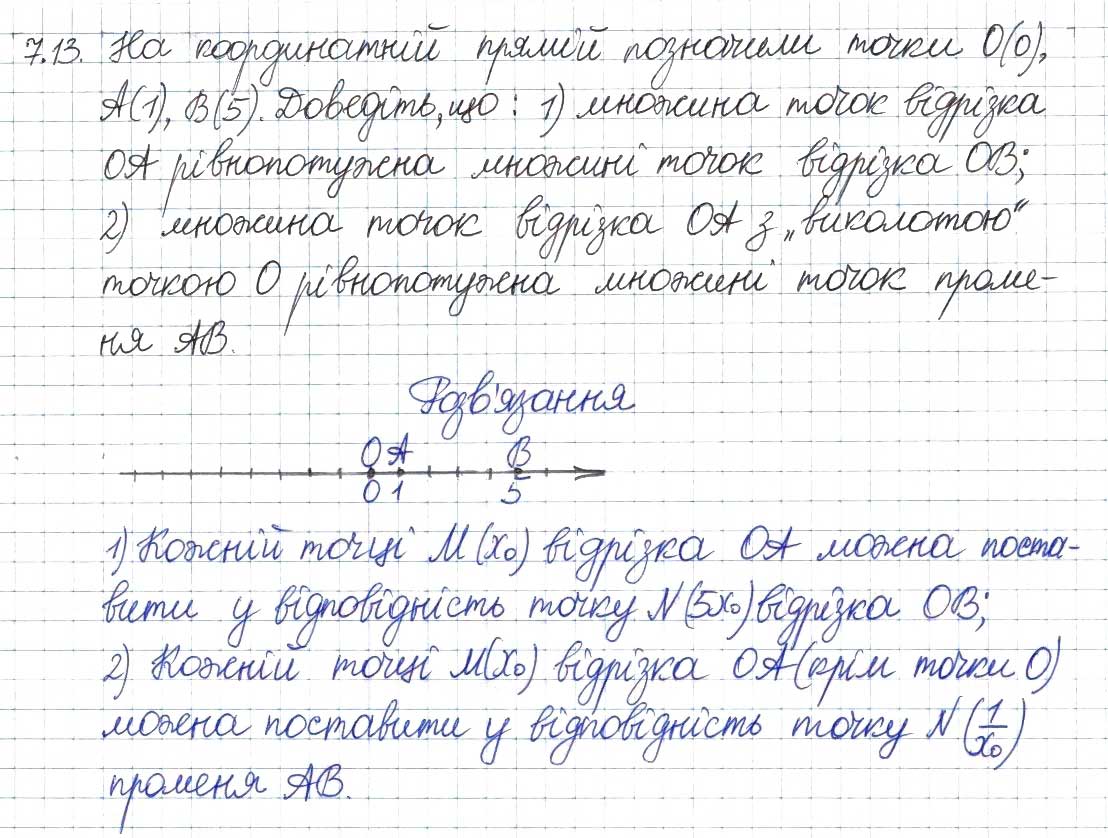 7.13. На координатній прямій позначили точки O(0),
A(1), B(5). Доведіть, що: 1) множина точок відрізка
OA рівнопотужна множині точок відрізка OB;
2) множина точок відрізка OA з „виколотою“
точкою O рівнопотужна множині точок проме-
ня AB.
Розв'язання
O A B
0 1 5
1) Кожній точці M(x₀) відрізка OA можна поста-
вити у відповідність точку N(5x₀) відрізка OB;
2) Кожній точці M(x₀) відрізка OA (крім точки O)
можна поставити у відповідність точку N(1/x₀)
променя AB.